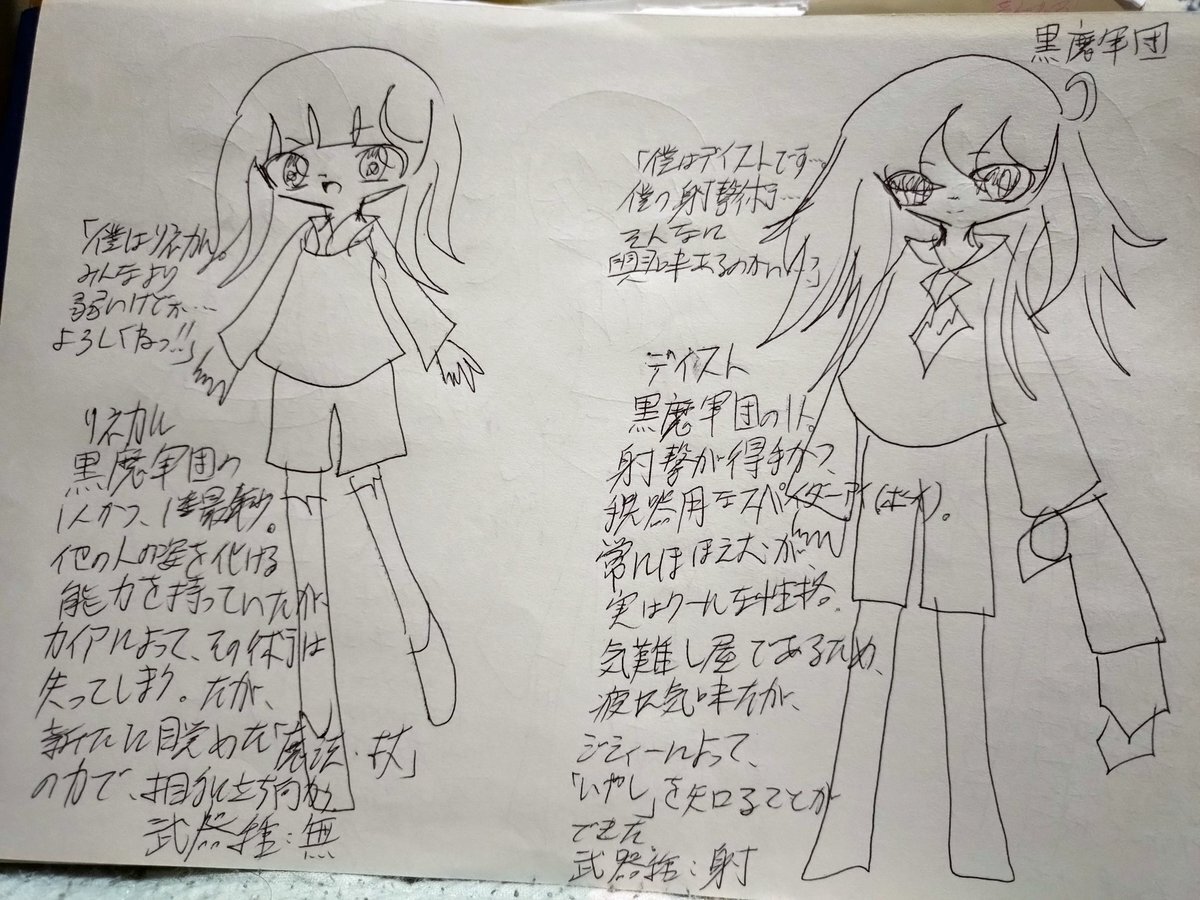 黒魔軍団
「僕はリネカル。
みんなより
弱いけどが…
よろしくねっ!!」
リネカル
黒魔軍団の
1人かつ、1番最弱。
他の人の姿を化ける
能力を持っていたが、
カイアによって、その術は
失ってしまう。だが、
新たに目覚めた「魔法・杖」
の力で、相手に立ち向かう
武器種:無
「僕はディストです…。
僕の射撃術…
そんなに
興味あるのかい?」
ディスト
黒魔軍団の1人。
射撃が得手かつ、
器用なスパイダー
常にほほえむが、
実はクールな性格。
気難し屋であるため、
疲れ気味だが、
ジティーによって、
「いやし」を知ることが
できた。
武器種:射